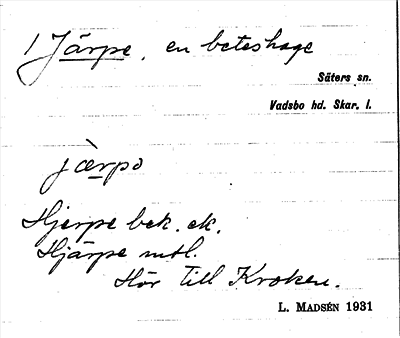 1 Järpe, en beteshage
Säters sn.
Vadsbo hd. Skar. l.
jærpo
Hjerpe bek. ek.
Hjärpe mtl.
Hör till Kroken.
L. MADSÉN 1931